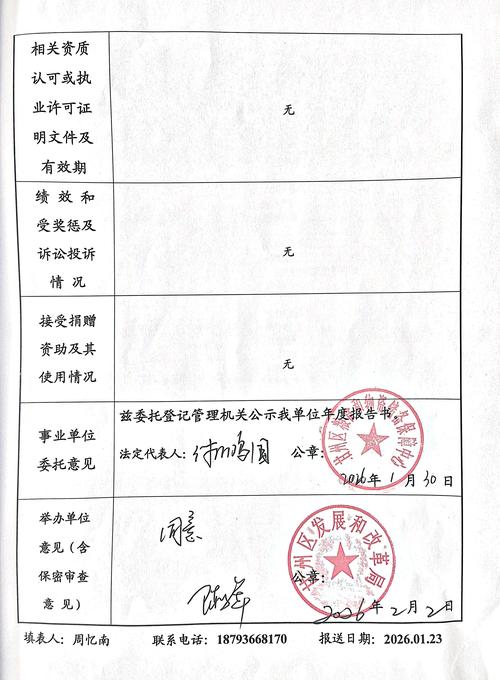 相关资质
认可或执
业许可证
明文件及
有效期
无
绩效和
受奖惩及
诉讼投诉
情况
无
接受捐赠
资助及其
使用情况
无
事业单位
委托意见
兹委托登记管理机关公示我单位年度报告书。
法定代表人: 公章:
2026年1月30日
举办单位
意见(含
保密审查
意见)
同意
公章:
甘州区发展和改革局
2026年2月2日
填表人:周忆南 联系电话:18793668170 报送日期:2026.01.23